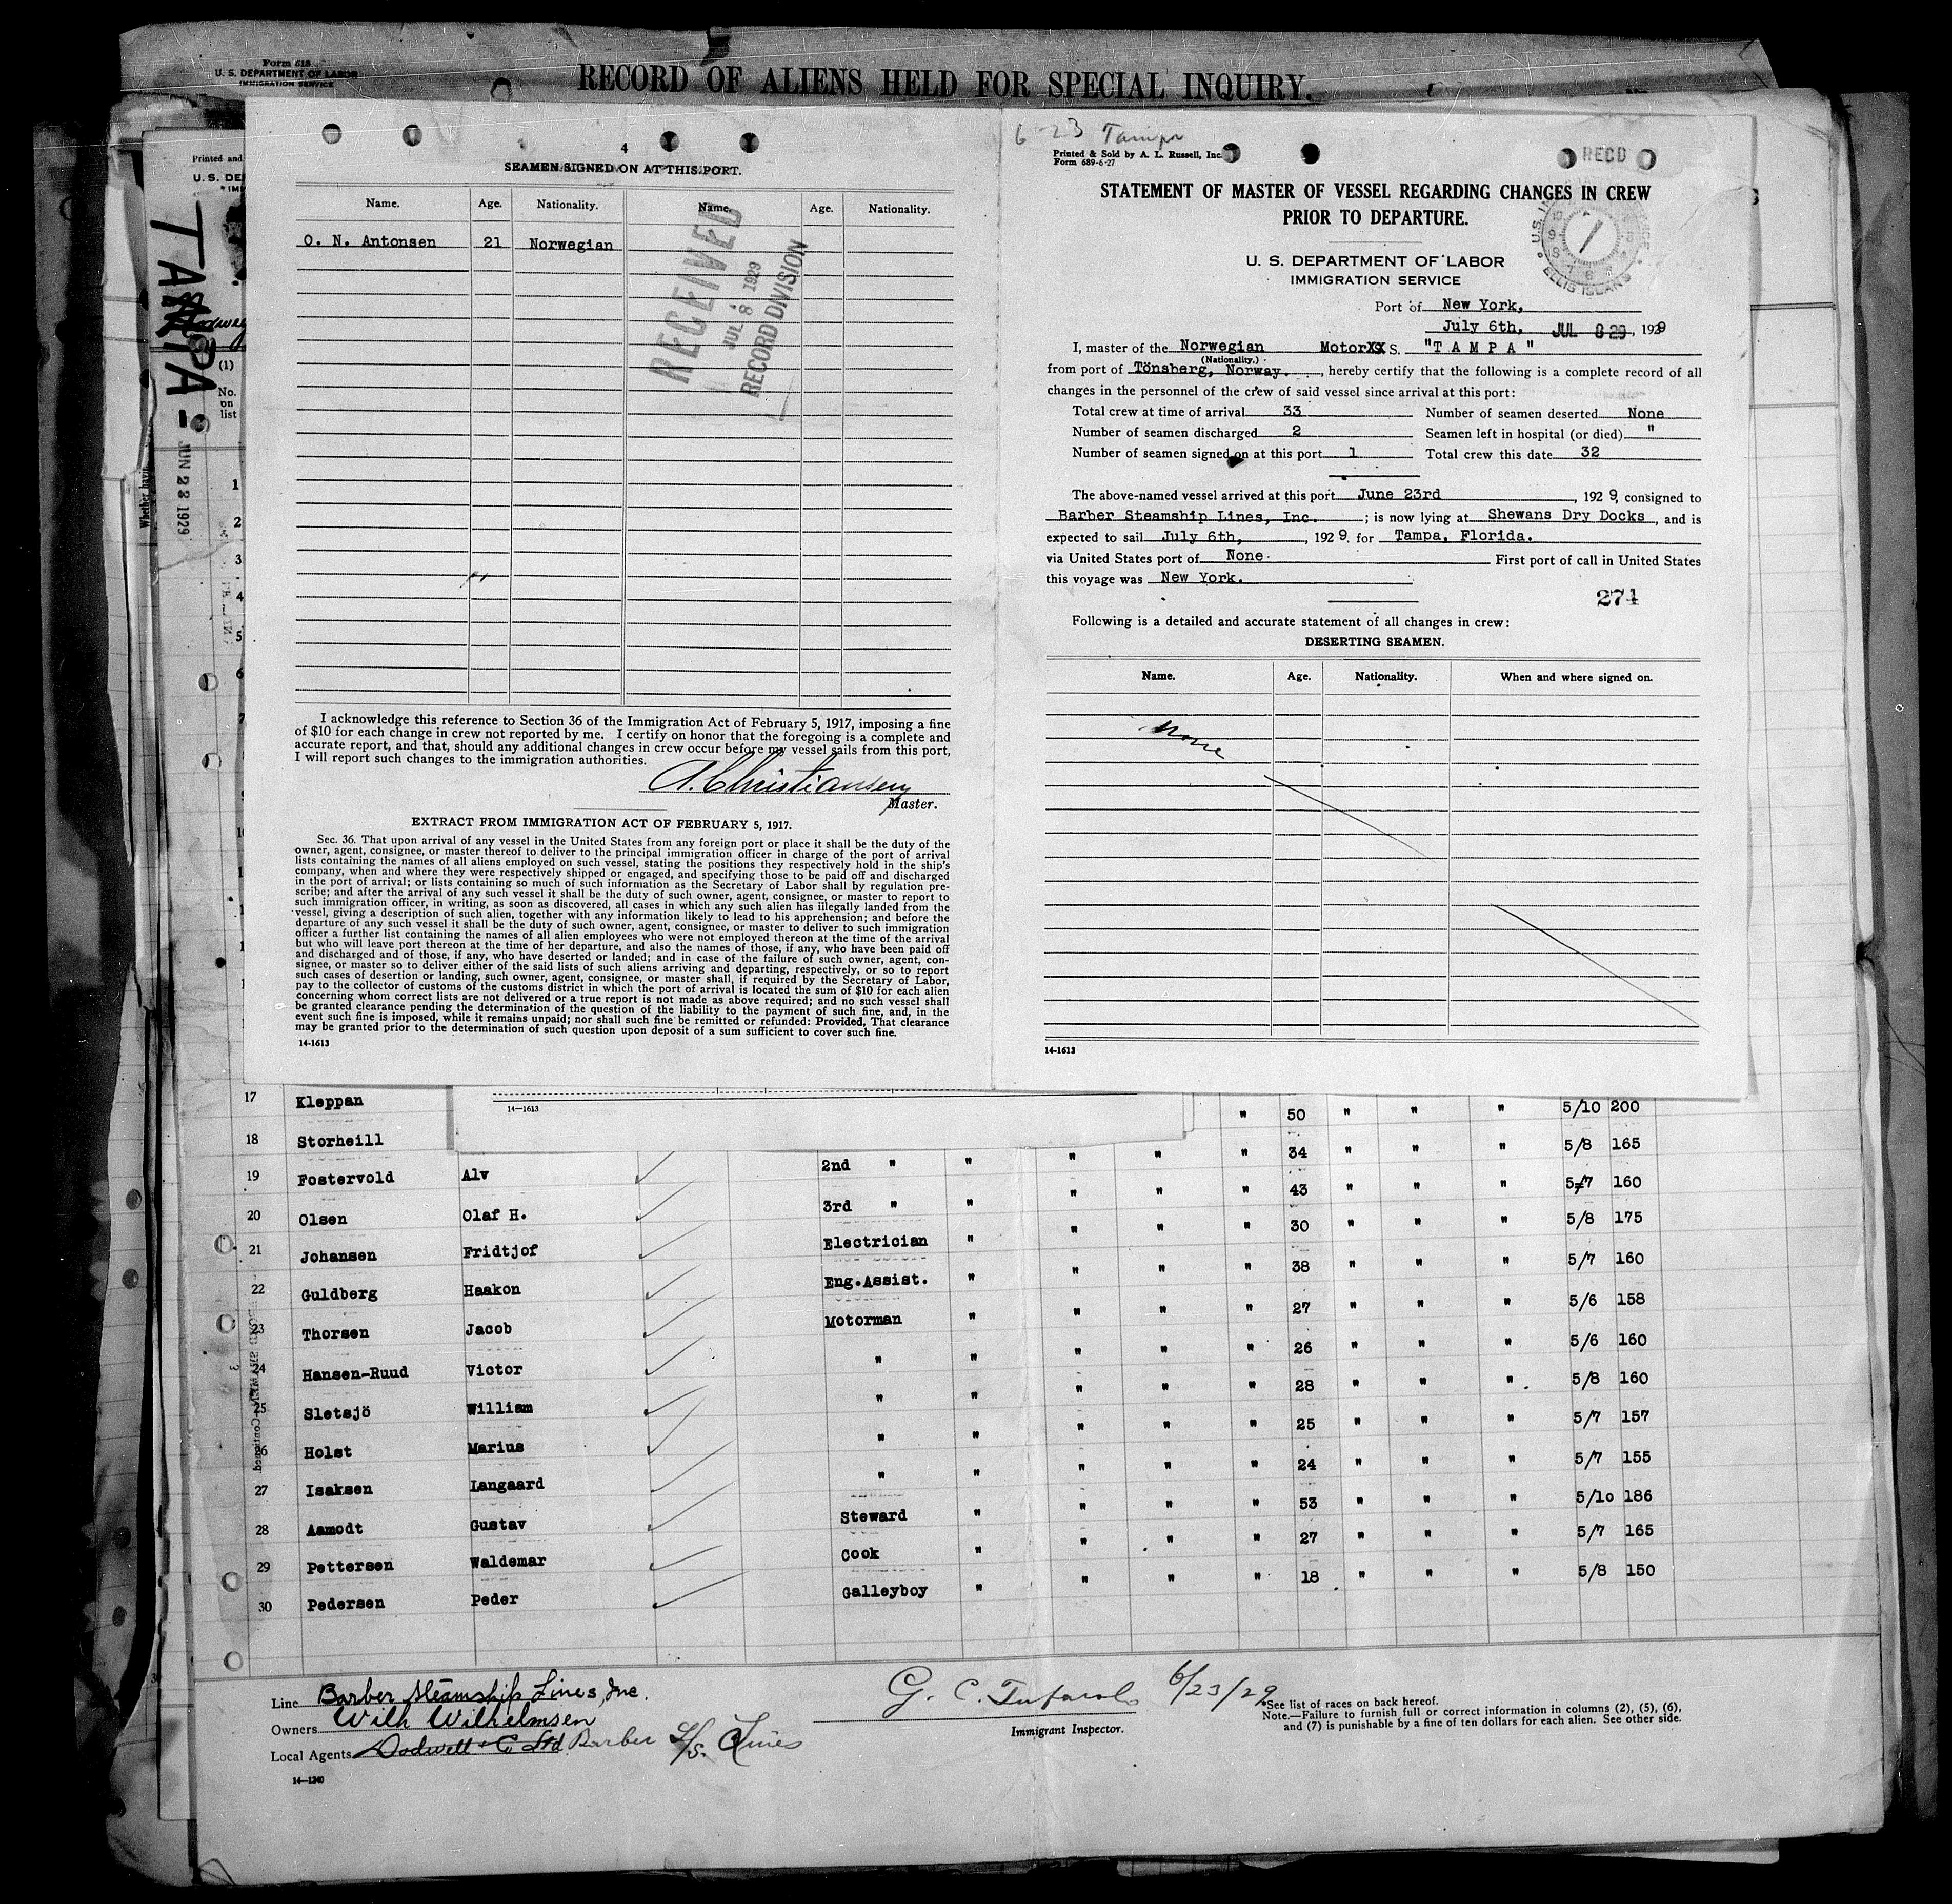 Form 518
U. S. DEPARTMENT OF LABOR
IMMIGRATION SERVICE
RECORD OF ALIENS HELD FOR SPECIAL INQUIRY.
Printed and
U. S. DE
TAMPA -
JUN 23 1929
(1)
No.
on
list
4
SEAMEN SIGNED ON AT THIS PORT.
Name. Age. Nationality. Name. Age. Nationality.
O. N. Antonsen 21 Norwegian
RECEIVED
JUL 8 1929
RECORD DIVISION
I acknowledge this reference to Section 36 of the Immigration Act of February 5, 1917, imposing a fine
of $10 for each change in crew not reported by me. I certify on honor that the foregoing is a complete and
accurate report, and that, should any additional changes in crew occur before my vessel sails from this port,
I will report such changes to the immigration authorities.
A. Christiansen
Master.
EXTRACT FROM IMMIGRATION ACT OF FEBRUARY 5, 1917.
Sec. 36. That upon arrival of any vessel in the United States from any foreign port or place it shall be the duty of the
owner, agent, consignee, or master thereof to deliver to the principal immigration officer in charge of the port of arrival
lists containing the names of all aliens employed on such vessel, stating the positions they respectively hold in the ship's
company, when and where they were respectively shipped or engaged, and specifying those to be paid off and discharged
in the port of arrival; or lists containing so much of such information as the Secretary of Labor shall by regulation pre-
scribe; and after the arrival of any such vessel it shall be the duty of such owner, agent, consignee, or master to report to
such immigration officer, in writing, as soon as discovered, all cases in which any such alien has illegally landed from the
vessel, giving a description of such alien, together with any information likely to lead to his apprehension; and before the
departure of any such vessel it shall be the duty of such owner, agent, consignee, or master to deliver to such immigration
officer a further list containing the names of all alien employees who were not employed thereon at the time of the arrival
but who will leave port thereon at the time of her departure, and also the names of those, if any, who have been paid off
and discharged and of those, if any, who have deserted or landed; and in case of the failure of such owner, agent, con-
signee, or master so to deliver either of the said lists of such aliens arriving and departing, respectively, or so to report
such cases of desertion or landing, such owner, agent, consignee, or master shall, if required by the Secretary of Labor,
pay to the collector of customs of the customs district in which the port of arrival is located the sum of $10 for each alien
concerning whom correct lists are not delivered or a true report is not made as above required; and no such vessel shall
be granted clearance pending the determination of the question of the liability to the payment of such fine, and, in the
event such fine is imposed, while it remains unpaid; nor shall such fine be remitted or refunded: Provided, That clearance
may be granted prior to the determination of such question upon deposit of a sum sufficient to cover such fine.
14-1613
6-23 Tampa
Printed & Sold by A. L. Russell, Inc.
Form 689-6-27
RECD
STATEMENT OF MASTER OF VESSEL REGARDING CHANGES IN CREW
PRIOR TO DEPARTURE.
ELLIS ISLAND
U. S. DEPARTMENT OF LABOR
IMMIGRATION SERVICE
Port of New York,
July 6th, JUL 8 29, 1929
I, master of the Norwegian Motor S. "TAMPA"
(Nationality.)
from port of Tönsberg, Norway. , hereby certify that the following is a complete record of all
changes in the personnel of the crew of said vessel since arrival at this port:
Total crew at time of arrival 33 Number of seamen deserted None
Number of seamen discharged 2 Seamen left in hospital (or died) "
Number of seamen signed on at this port 1 Total crew this date 32
The above-named vessel arrived at this port June 23rd , 1929, consigned to
Barber Steamship Lines, Inc. ; is now lying at Shewans Dry Docks , and is
expected to sail July 6th, , 1929. for Tampa, Florida.
via United States port of None. First port of call in United States
this voyage was New York.
274
Following is a detailed and accurate statement of all changes in crew:
DESERTING SEAMEN.
Name. Age. Nationality. When and where signed on.
None
14-1613
14—1613
17 Kleppan " 50 " " " 5/10 200
18 Storheill " " " 34 " " " 5/8 165
19 Fostervold Alv 2nd " " " " " 43 " " " 5/7 160
20 Olsen Olaf H. 3rd " " " " " 30 " " " 5/8 175
21 Johansen Fridtjof Electrician " " " " 38 " " " 5/7 160
22 Guldberg Haakon Eng.Assist. " " " " 27 " " " 5/6 158
23 Thorsen Jacob Motorman " " " 26 " " " 5/6 160
24 Hansen-Ruud Victor " " " " " 28 " " " 5/8 160
25 Sletsjö William " " " " " 25 " " " 5/7 157
26 Holst Marius " " " " " 24 " " " 5/7 155
27 Isaksen Langaard " " " " " 53 " " " 5/10 186
28 Aamodt Gustav Steward " " " " 27 " " " 5/7 165
29 Pettersen Waldemar Cook " " " " 18 " " " 5/8 150
30 Pedersen Peder Galleyboy "
Line Barber Steamship Lines, Inc.
Owners Wilh Wilhelmsen
Local Agents Dodwell & Co Ltd Barber S/S. Lines
14—1240
G. C. 6/23/29
Immigrant Inspector.
*See list of races on back hereof.
Note.—Failure to furnish full or correct information in columns (2), (5), (6),
and (7) is punishable by a fine of ten dollars for each alien. See other side.